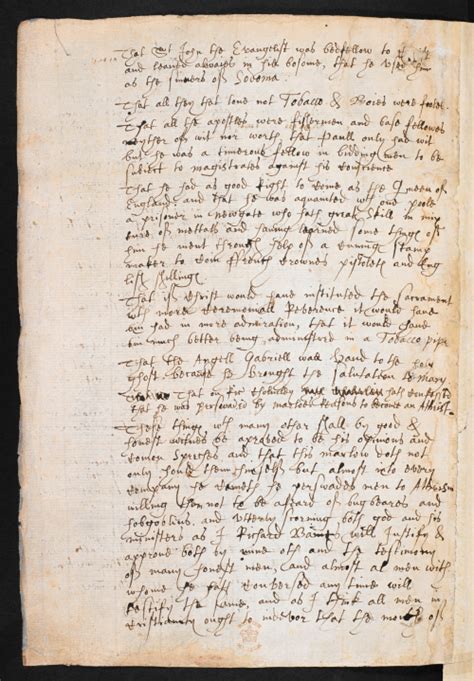 That St John the Evangelist was bedfellow to
and leaned alwaies in his bosome, that he vsed him
as the sinners of Sodoma.
That all they that loue not Tobacco & Boies were fooles.
That all the apostles were fishermen and base fellowes
neyther of wit nor worth that Paull only had wit
but he was a timerous fellow in bidding men to be
subiect to magistrates against his Conscience
That he had as good Right to Coine as the Queen of
England, and that he was aquainted wth one poole
a prisoner in newgate who hath great skill in mix
ture of mettals and hauing learned some things of
him he ment through help of a Cuning stamp
maker to Coin ffrench Crownes pistolets and Eng
lish shillings.
That if Christ would haue instituted the Sacrament
wth more Ceremoniall Reverence it would haue
bin had in more admiration, that it would haue
bin much better being administred in a Tobacco pipe
That the Angell Gabriell was baud to the holy
ghost, because he brought the salutation to Mary.
That on Ric Cholmley hath Confessed
that he was perswaded by marloes Reasons to become an Atheist.
These things, wth many other shall by good &
honest witnes be aproved to be his opinions and
Comon Speeches and that this marlow doth not
only hould them himself but almost into every
Company he Cometh he perswades men to Atheism
willing them not to be afeard of bugbeares and
hobgoblins, and vtterly scorning both god and his
ministers as I Richard Bame will Iustify &
approue both by mine oth and the testimony
of many honest men, and almost al men with
whome he hath Conversed any time will
testify the same, and as I think all men in
Cristianity ought to indevor that the mouth of